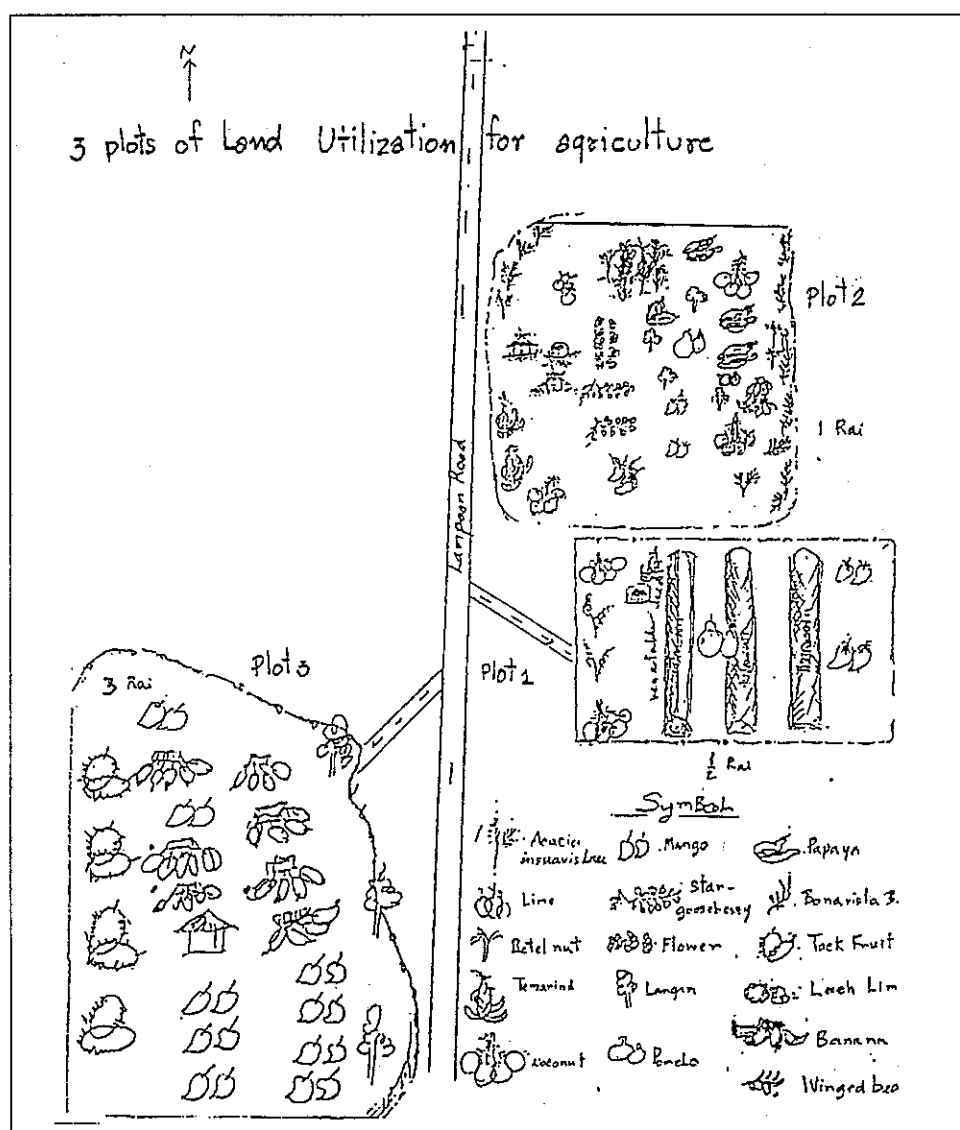 N
3 plots of Land Utilization for agriculture
Plot 2
1 Rai
Lampoon Road
vegetable
Plot 3
3 Rai
Plot 1
1/2 Rai
Symbol
Acacia insuavis Lace
Mango
Papaya
Lime
Star-gooseberry
Bonavista B.
Betel nut
Flower
Jack Fruit
Temarind
Langan
Leech Lim
Coconut
Banana
Winged bea